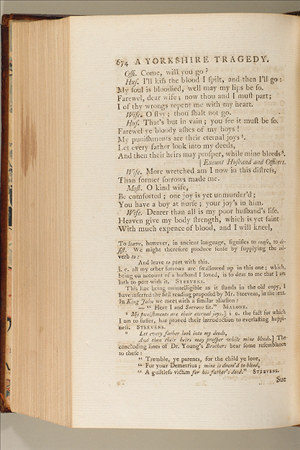 674 A YORKSHIRE TRAGEDY.
Offi. Come, will you go?
Huſ. I'll kiſs the blood I ſpilt, and then I'll go:
My ſoul is bloudied, well may my lips be ſo.
Farewel, dear wife; now thou and I muſt part;
I of thy wrongs repent me with my heart.
Wife. O ſtay; thou ſhalt not go.
Huſ. That's but in vain; you ſee it muſt be ſo.
Farewel ye bloody aſhes of my boys!
My puniſhments are their eternal joys.
Let every father look into my deeds,
And then their heirs may proſper, while mine bleeds.
[Exeunt Huſband and Officers.
Wife. More wretched am I now in this diſtreſs,
Than former ſorrows made me.
Maſt. O kind wife,
Be comforted; one joy is yet unmurder'd;
You have a boy at nurſe; your joy's in him.
Wife. Dearer than all is my poor huſband's life.
Heaven give my body ſtrength, which is yet faint
With much expence of blood, and I will kneel,
To leave, however, in ancient language, ſignifies to
We might therefore produce ſenſe by ſupplying the
verb to:
And leave to part with this.
i. e. all my other ſorrows are ſwallowed up in this one; which,
being on account of a huſband I loved, is ſo dear to me that I am
loth to part with it. STEEVENS.
This line being unintelligible as it ſtands in the old copy, I
have inſerted the firſt reading propoſed by Mr. Steevens, in the text.
In King John we meet with a ſimilar
" Here I and Sorrows ſit." MALONE.
My puniſhments are their eternal joys.] i. e. the fact for which
I am to ſuffer, has proved their introduction to everlaſting happineſs.
STEEVENS.
Let every father look into my deeds,
And then their heirs may proſper while mine bleeds.] The
concluding lines of Dr. Young's Brothers bear ſome reſemblance
to theſe:
" Tremble, ye parents, for the child ye love,
" For your Demetrius; mine is doom'd to bleed,
" A guiltleſs victim for his father's deed." STEEVENS.
Sue